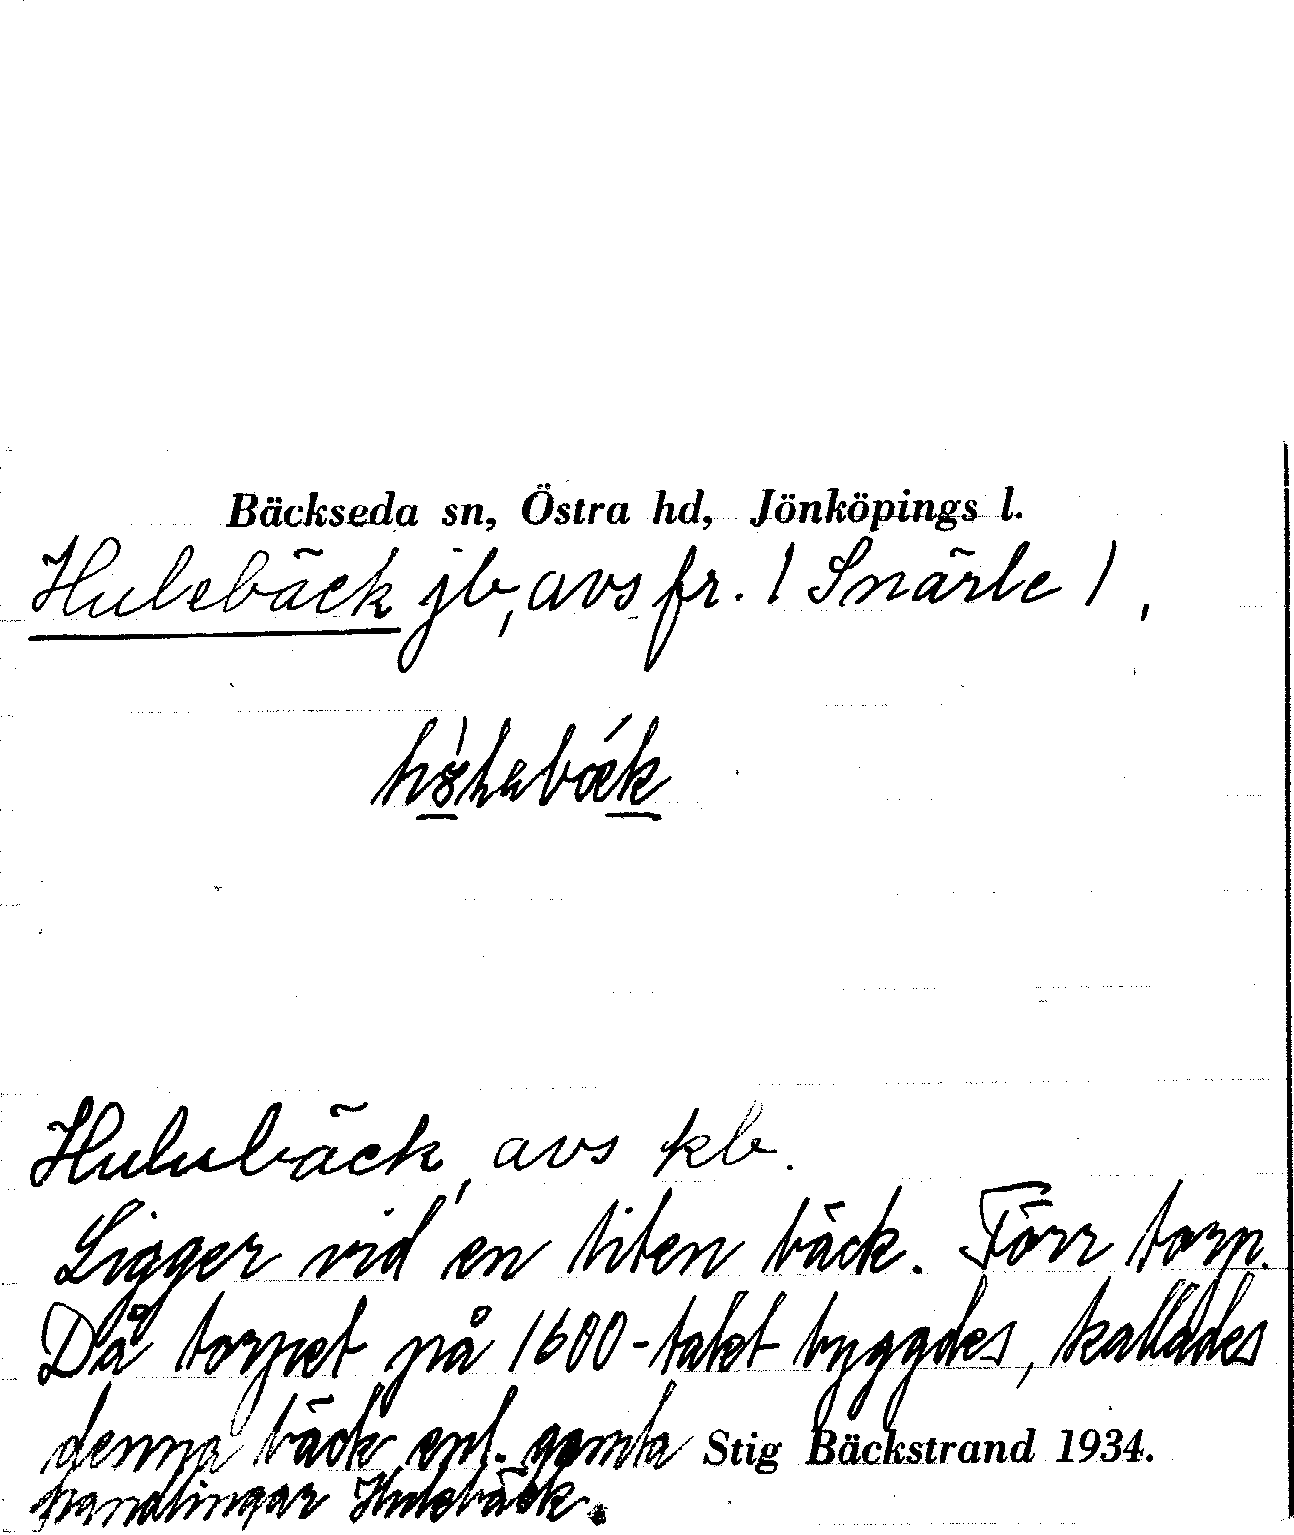 Bäckseda sn, Östra hd, Jönköpings l.
Hulebäck jb, avs fr. / Snärle / ,
Hulubäck, avs kb.
Ligger vid en liten bäck. Förr torp.
Då torpet på 1600-talet byggdes, kallades
denna bäck enl. gamla Stig Bäckstrand 1934.
handlingar Hulebäck.